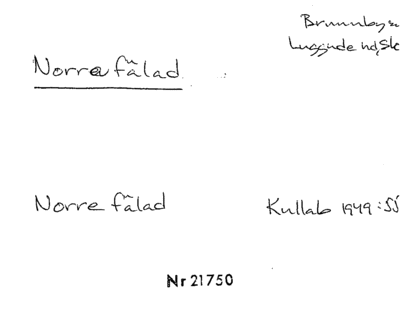 Brunnby sn
Luggude hd, Sk
Norra fälad
Norre fälad
Kullab 1949:55
Nr 21750